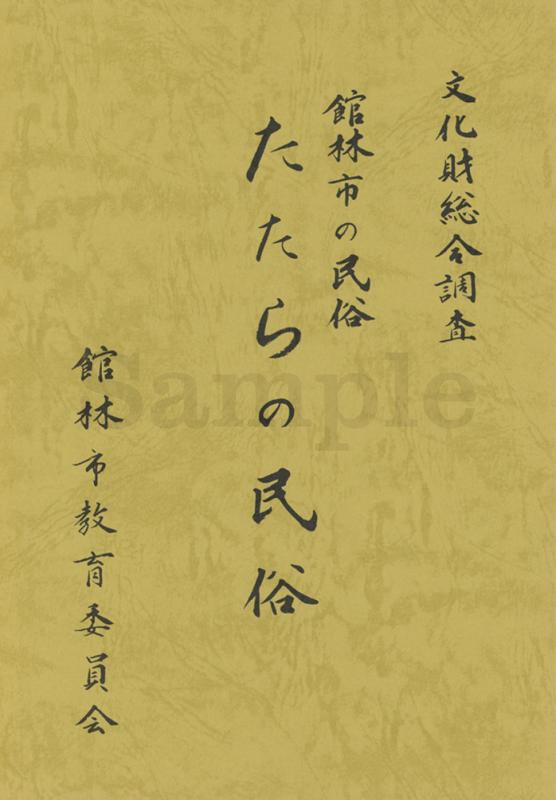 文化財総合調査
館林市の民俗
たたらの民俗
館林市教育委員会
Sample